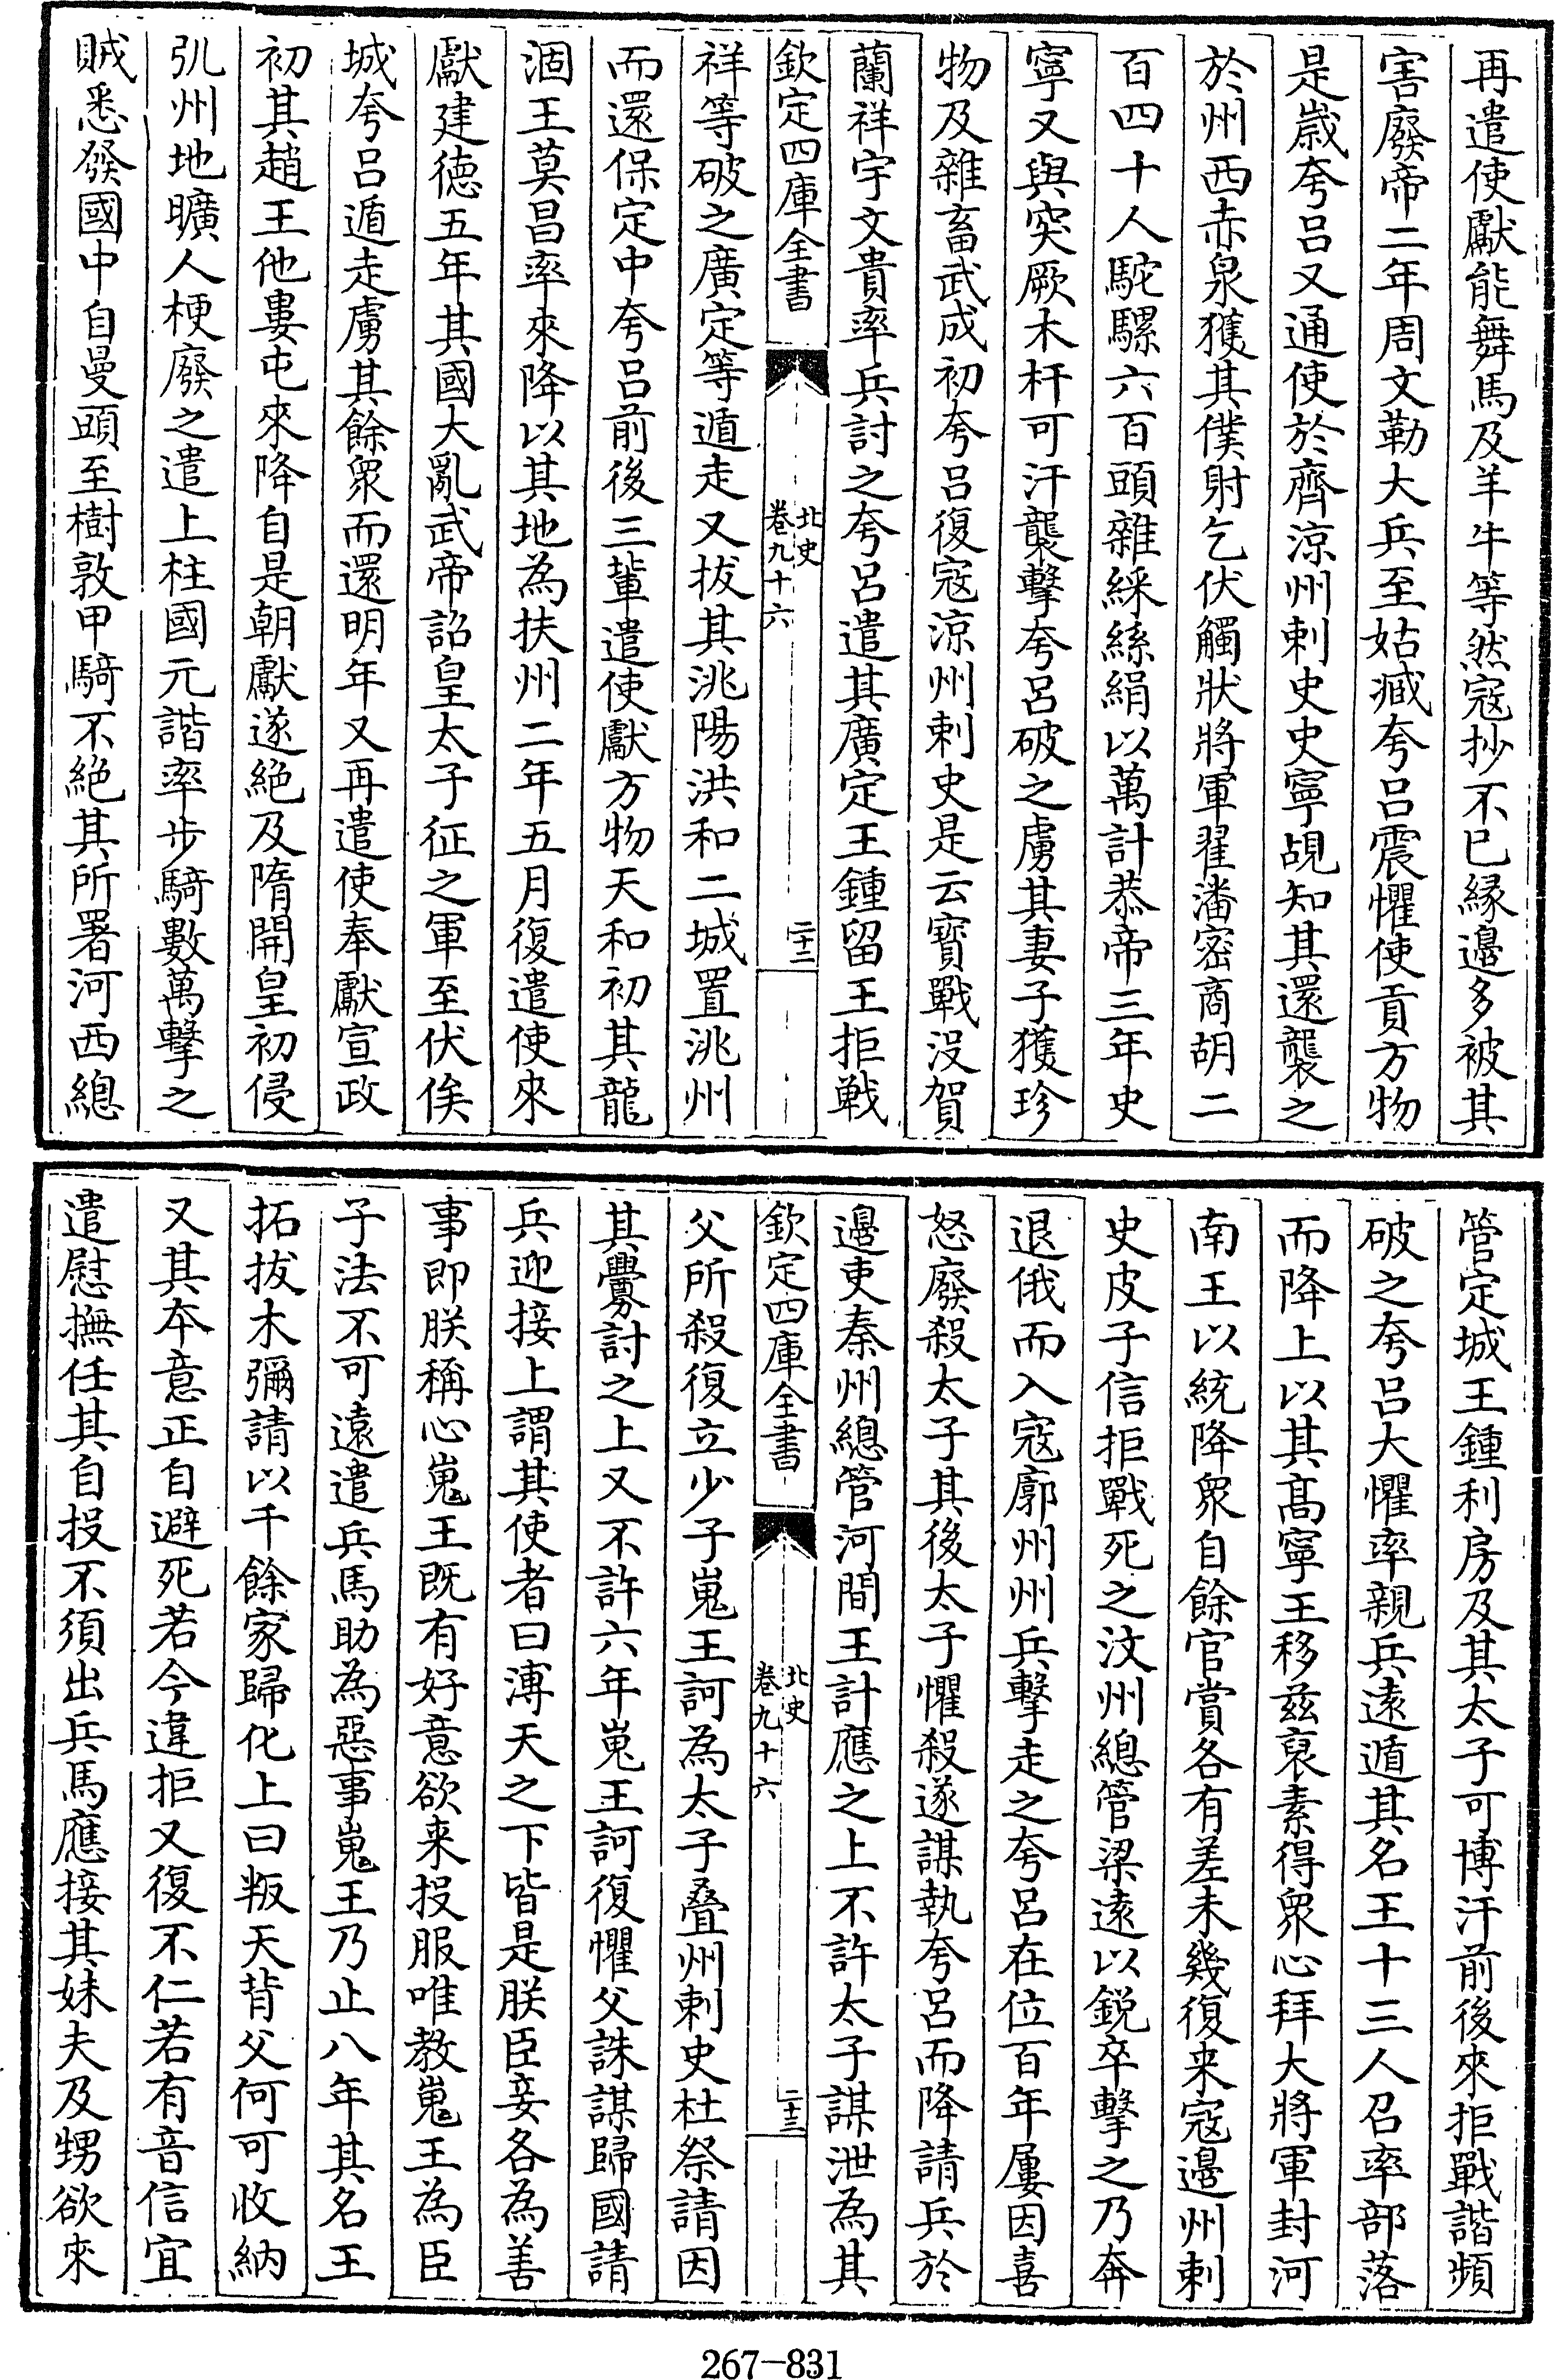 再遣使獻能舞馬及羊牛等然寇抄不已縁邊多被其
害廢帝二年周文勒大兵至姑臧夸吕震懼使貢方物
是歲夸吕又通使於齊涼州刺史史寧覘知其還襲之
於州西赤泉獲其僕射乞伏觸狀將軍翟潘密商胡二
百四十人駝騾六百頭雜綵絲絹以萬計恭帝三年史
寧又與突厥木杆可汗襲擊夸吕破之虜其妻子獲珍
物及雜畜武成初夸吕復寇涼州刺史是云寳戰没賀
蘭祥宇文貴率兵討之夸吕遣其廣定王鍾留王拒戰
欽定四庫全書
北史
卷九十六
二十二
祥等破之廣定等遁走又拔其洮陽洪和二城置洮州
而還保定中夸吕前後三輩遣使獻方物天和初其龍
涸王莫昌率來降以其地為扶州二年五月復遣使來
獻建徳五年其國大亂武帝詔皇太子征之軍至伏俟
城夸吕遁走虜其餘衆而還明年又再遣使奉獻宣政
初其趙王他婁屯來降自是朝獻遂絶及隋開皇初侵
弘州地曠人梗廢之遣上柱國元諧率步騎數萬擊之
賊悉發國中自曼頭至樹敦甲騎不絶其所署河西總
管定城王鍾利房及其太子可博汗前後來拒戰諧頻
破之夸吕大懼率親兵逺遁其名王十三人召率部落
而降上以其髙寧王移兹裒素得衆心拜大將軍封河
南王以統降衆自餘官賞各有差未幾復来寇邊州刺
史皮子信拒戰死之汶州總管梁逺以鋭卒擊之乃奔
退俄而入寇廓州州兵擊走之夸吕在位百年屢因喜
怒廢殺太子其後太子懼殺遂謀執夸吕而降請兵於
邊吏秦州總管河間王計應之上不許太子謀泄為其
欽定四庫全書
北史
卷九十六
二十三
父所殺復立少子嵬王訶為太子疊州刺史杜祭請因
其釁討之上又不許六年嵬王訶復懼父誅謀歸國請
兵迎接上謂其使者曰溥天之下皆是朕臣妾各為善
事即朕稱心嵬王既有好意欲来投服唯教嵬王為臣
子法不可逺遣兵馬助為惡事嵬王乃止八年其名王
拓拔木彌請以千餘家歸化上曰叛天背父何可收納
又其本意正自避死若今違拒又復不仁若有音信宜
遣慰撫任其自投不須出兵馬應接其妹夫及甥欲來
267-831